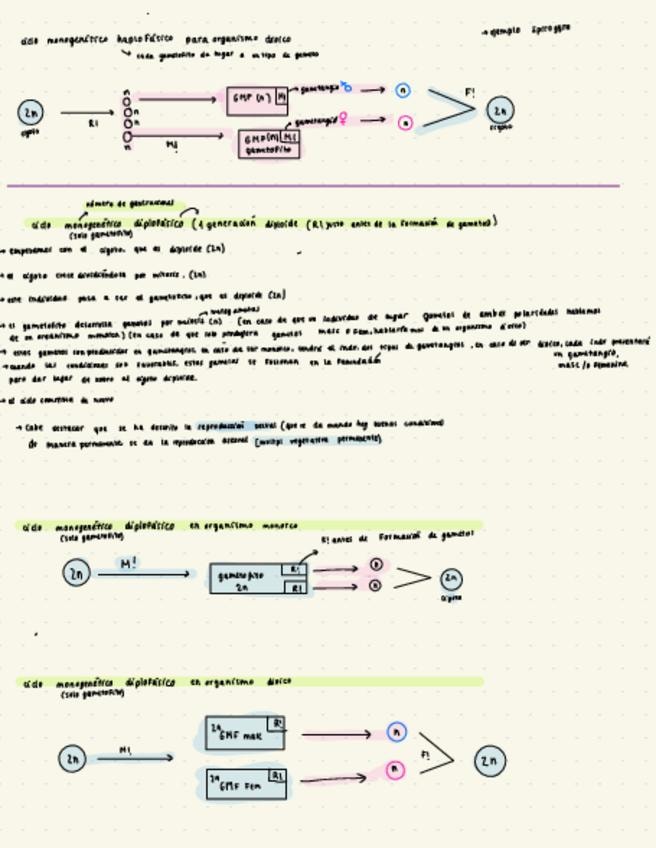 ciclo monogenético haplofásico para organismo dioico
→ ejemplo Spirogyra
↳ cada gametofito da lugar a un tipo de gameto
2n
cigoto
R!
n
n
n
n
M!
GMF (n)
M!
gametangio ♂
GMF(n)
M!
gametofito
gametangio ♀
n
n
F!
2n
cigoto
número de generaciones
ciclo monogenético diplofásico (1 generación diploide (R! justo antes de la formación de gametos)
(solo gametofito)
→ empezamos con el cigoto, que es diploide (2n)
→ el cigoto crece dividiéndose por mitosis. (2n)
→ este individuo pasa a ser el gametofito, que es diploide (2n)
→ el gametofito desarrolla gametos por meiosis (n) (en caso de que un individuo de lugar gametos de ambas polaridades hablamos
de un organismo monoico) (en caso de que solo produjera gametos masc o Fem, hablaríamos de un organismo dioico)
→ estos gametos son producidos en gametangios, en caso de ser monoico, tendrá el indv. dos tipos de gametangios, en caso de ser dioico, cada indv presentará
un gametangio,
masc/o femenino
→ cuando las condiciones son favorables, estos gametos se fusionan en la fecundación
para dar lugar de nuevo al cigoto diploide.
→ el ciclo comienza de nuevo
→ Cabe destacar que se ha descrito la reproducción sexual (que se da cuando hay buenas condiciones)
de manera permanente se da la reproducción asexual (multipl vegetativa permanente)
ciclo monogenético diplofásico en organismo monoico
(solo gametofito)
R! antes de Formación de gametos
2n
M!
gametofito
2n
R!
R!
n
n
2n
cigoto
ciclo monogenético diplofásico en organismo dioico
(solo gametofito)
2n
M!
2n
GMF masc
R!
2n
GMF Fem
R!
n
n
F!
2n